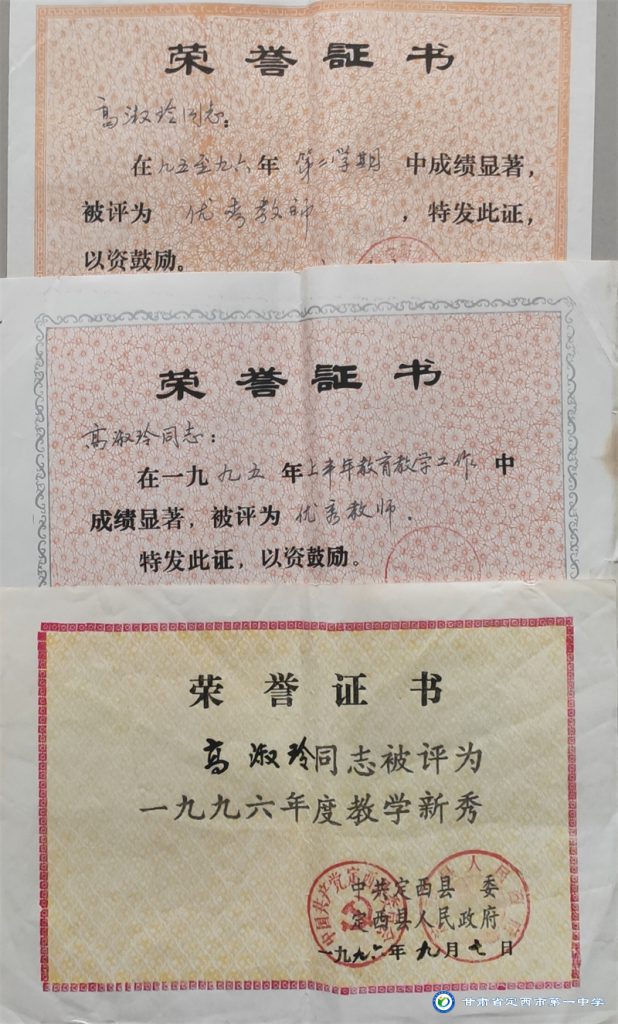 荣誉証书
高淑玲同志：
在九五至九六年 第二学期 中成绩显著，
被评为 优秀教师 ，特发此证，
以资鼓励。
荣誉証书
高淑玲同志：
在一九九五年上半年教育教学工作中
成绩显著，被评为优秀教师．
特发此证，以资鼓励。
荣誉证书
高淑玲同志被评为
一九九六年度教学新秀
中共定西县 委
定西县人民政府
一九九六年九月七日
甘肃省定西市第一中学